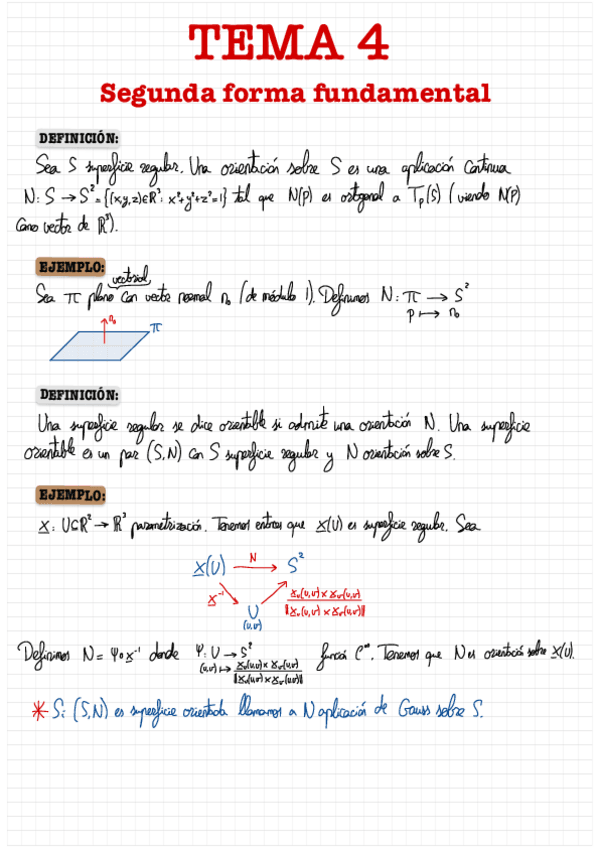 TEMA 4
Segunda forma fundamental
DEFINICIÓN:
Sea S superficie regular. Una orientación sobre S es una aplicación continua
N: S → S² = {(x,y,z)∈R³: x²+y²+z²=1} tal que N(p) es ortogonal a Tp(S) (viendo N(p)
como vector de R³).
EJEMPLO:
vectorial
Sea π plano con vector normal n₀ (de módulo 1). Definimos N: π → S²
p ↦ n₀
n₀
π
DEFINICIÓN:
Una superficie regular se dice orientable si admite una orientación N. Una superficie
orientable es un par (S,N) con S superficie regular y N orientación sobre S.
EJEMPLO:
X: U⊆R² → R³ parametrización. Tenemos entonces que X(U) es superficie regular. Sea
X(U) N S²
X⁻¹
U
(u,v)
Xu(u,v) × Xv(u,v)
‖Xu(u,v) × Xv(u,v)‖
Definimos N = Ψ∘X⁻¹ donde Ψ: U → S² función C∞. Tenemos que N es orientación sobre X(U).
(u,v) ↦ Xu(u,v) × Xv(u,v)
‖Xu(u,v) × Xv(u,v)‖
* Si (S,N) es superficie orientada llamamos a N aplicación de Gauss sobre S.